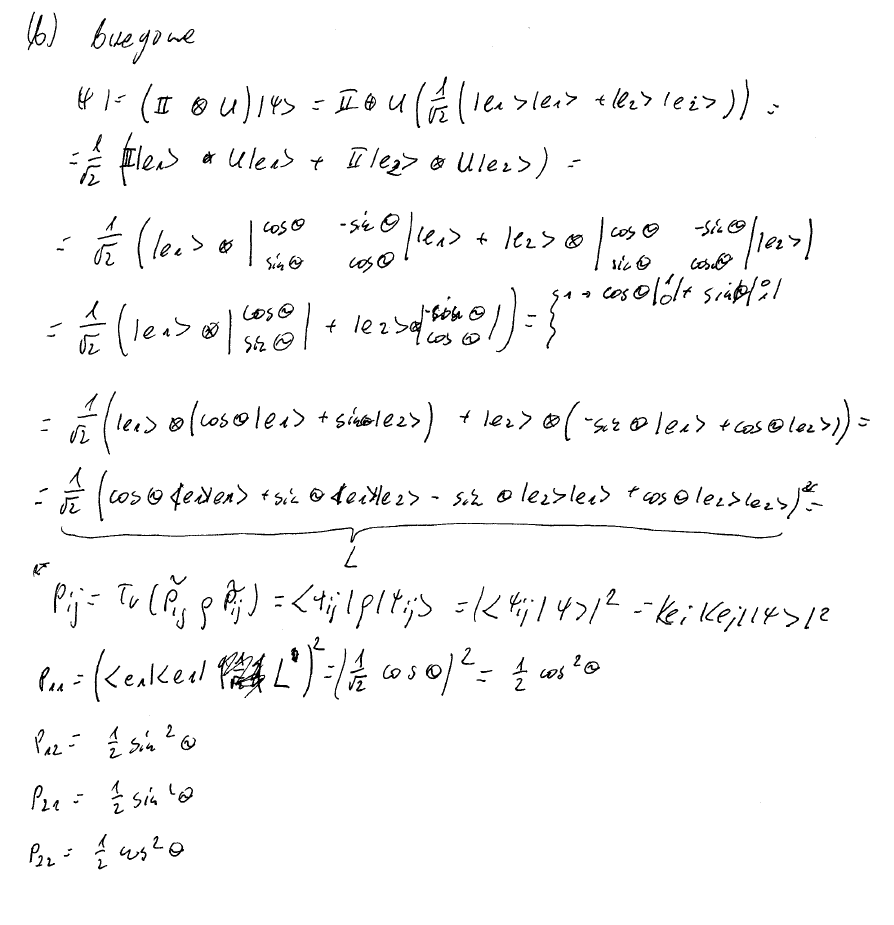 (b)
|ψ'⟩ = (𝟙 ⊗ U)|ψ⟩ = 𝟙 ⊗ U (1/√2 (|e₁⟩|e₁⟩ + |e₂⟩|e₂⟩)) =
= 1/√2 (𝟙|e₁⟩ ⊗ U|e₁⟩ + 𝟙|e₂⟩ ⊗ U|e₂⟩) =
= 1/√2 (|e₁⟩ ⊗ |cosθ -sinθ; sinθ cosθ| |e₁⟩ + |e₂⟩ ⊗ |cosθ -sinθ; sinθ cosθ| |e₂⟩)
= 1/√2 (|e₁⟩ ⊗ |cosθ; sinθ| + |e₂⟩ ⊗ |-sinθ; cosθ|) = { → cosθ |1; 0| + sinθ |0; 1|
= 1/√2 (|e₁⟩ ⊗ (cosθ|e₁⟩ + sinθ|e₂⟩) + |e₂⟩ ⊗ (-sinθ|e₁⟩ + cosθ|e₂⟩)) =
= 1/√2 (cosθ |e₁⟩|e₁⟩ + sinθ |e₁⟩|e₂⟩ - sinθ |e₂⟩|e₁⟩ + cosθ |e₂⟩|e₂⟩) =
L
P_ij = Tr (P̃_ij ρ P̃_ij) = ⟨ψ_ij|ρ|ψ_ij⟩ = |⟨ψ_ij|ψ⟩|² = |⟨e_i|⟨e_j||ψ⟩|²
P₁₁ = (⟨e₁|⟨e₁| L)² = |1/√2 cosθ|² = 1/2 cos²θ
P₁₂ = 1/2 sin²θ
P₂₁ = 1/2 sin²θ
P₂₂ = 1/2 cos²θ